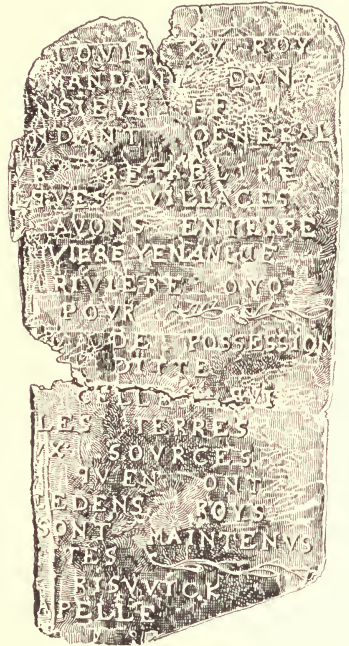 LOUIS XV ROY
MANDANT DVN
NSIEVR LE
NDANT GENERAL
RETABLIRE
QVES VILLAGES
AVONS ENTERRE
IVIERE YENANGUE
RIVIERE OYO
POVR
DE POSSESSION
DITTE
CELLE QVI
LES TERRES
X SOVRCES
IVEN ONT
CEDENS ROYS
SONT MAINTENVS
TES
RISVVICK
APELLE